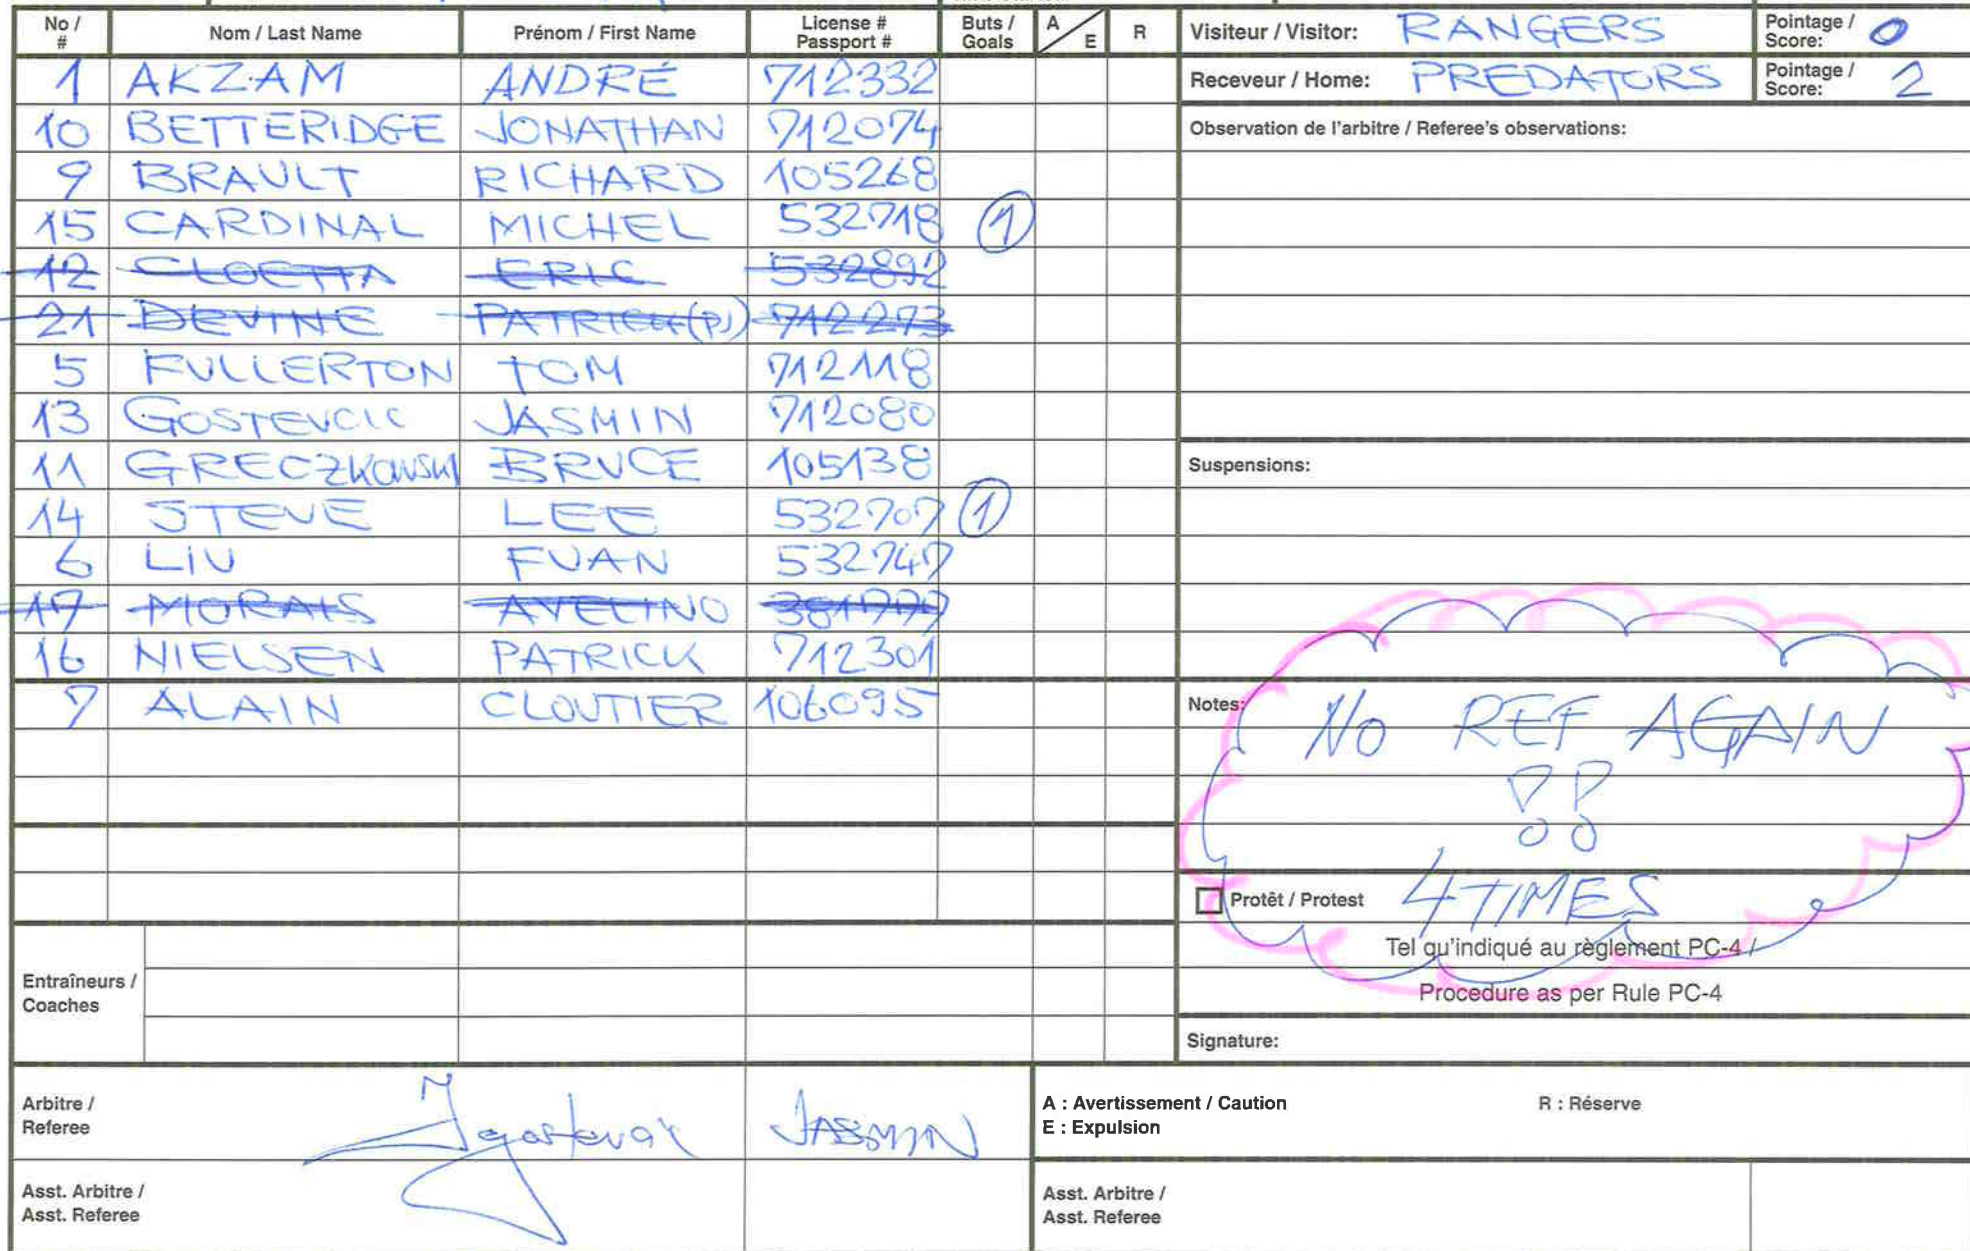 No / # Nom / Last Name Prénom / First Name License # Passport # Buts / Goals A / E R
1 AKZAM ANDRÉ 712332
10 BETTERIDGE JONATHAN 712074
9 BRAULT RICHARD 105268
15 CARDINAL MICHEL 532718 1
12 CLOETTA ERIC 532892
21 DEVINE PATRICK (PJ) 712273
5 FULLERTON TOM 712118
13 GOSTEVCIC JASMIN 712080
11 GRECZKOWSKI BRUCE 105138
14 STEVE LEE 532707 1
6 LIU FUAN 532747
17 MORAIS AVELINO 381777
16 NIELSEN PATRICK 712301
7 ALAIN CLOUTIER 106095
Entraîneurs / Coaches
Visiteur / Visitor: RANGERS Pointage / Score: 0
Receveur / Home: PREDATORS Pointage / Score: 2
Observation de l'arbitre / Referee's observations:
Suspensions:
Notes: NO REF AGAIN
!!
Protêt / Protest 4 TIMES
Tel qu'indiqué au règlement PC-4 /
Procedure as per Rule PC-4
Signature:
Arbitre / Referee JASMIN
A : Avertissement / Caution R : Réserve
E : Expulsion
Asst. Arbitre / Asst. Referee
Asst. Arbitre / Asst. Referee